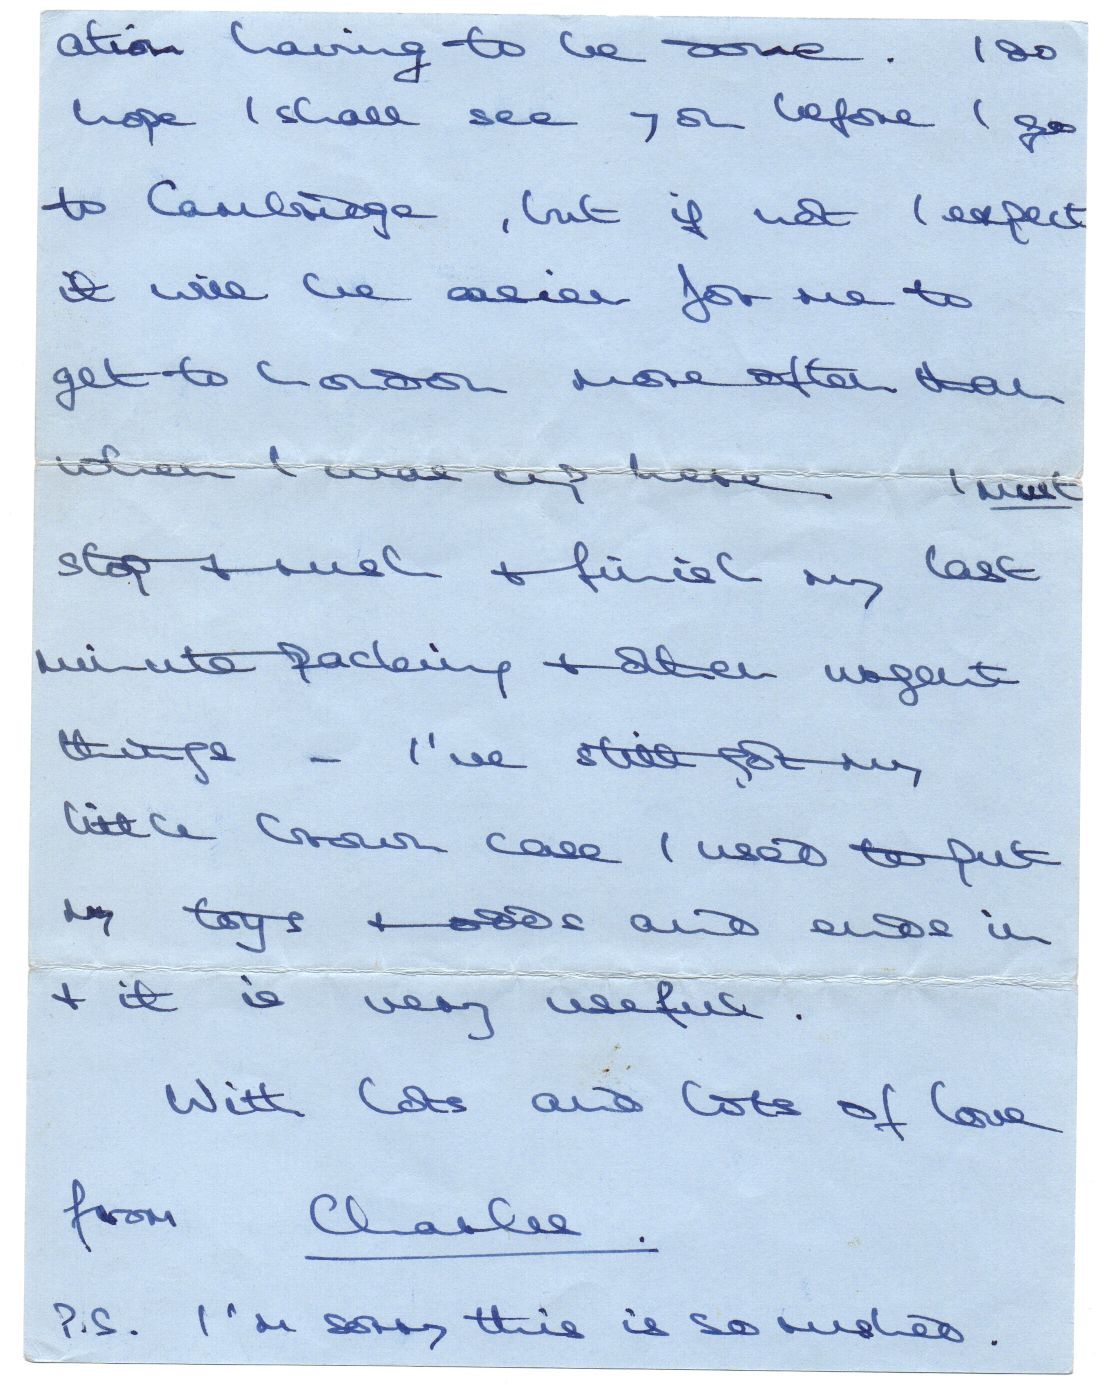 ation having to be done. I do
hope I shall see you before I go
to Cambridge, but if not I expect
it will be easier for me to
get to London more often than
when I was up here. I must
stop + rush + finish my last
minute packing + other urgent
things - I've still got my
little brown case I used to put
my toys + odds and ends in
+ it is very useful.
With lots and lots of love
from Charles.
P.S. I'm sorry this is so rushed.